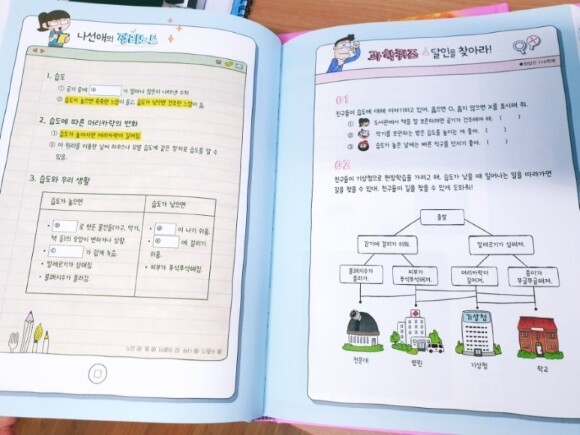 나선애의 정리노트
1. 습도
① 공기 중에 ⓐ 가 얼마나 있는지 나타낸 수치
② 습도가 높으면 축축한 느낌이 들고, 습도가 낮으면 건조한 느낌이 듦.
2. 습도에 따른 머리카락의 변화
① 습도가 높아지면 머리카락이 길어짐.
② 이 원리를 이용한 날씨 하우스나 모발 습도계 같은 장치로 습도를 알 수
있음.
3. 습도와 우리 생활
습도가 높으면
습도가 낮으면
• ⓑ 로 만든 물건들(가구, 악기,
책 등)의 모양이 변하거나 상함.
• ⓒ 가 쉽게 녹음.
• 알레르기가 심해짐.
• 불쾌지수가 올라감.
• ⓓ 이 나기 쉬움.
• ⓔ 에 걸리기
쉬움.
• 피부가 푸석푸석해짐.
과학퀴즈 달인을 찾아라!
●정답은 119쪽에
01
친구들이 습도에 대해 이야기하고 있어. 옳으면 O, 옳지 않으면 X를 표시해 줘.
① 도서관에서 책을 잘 보존하려면 공기가 건조해야 해. ( )
② 악기를 보관하는 방은 습도를 높이는 게 좋아. ( )
③ 습도가 높은 날에는 빠른 직구를 던지기 좋아. ( )
02
친구들이 기상청으로 현장학습을 가려고 해. 습도가 낮을 때 일어나는 일을 따라가면
길을 찾을 수 있어. 친구들이 길을 찾을 수 있게 도와줘!
출발
감기에 걸리기 쉬워.
알레르기가 심해져.
불쾌지수가
올라가.
피부가
푸석푸석해져.
머리카락이
길어져.
종이가
쭈글쭈글해져.
기상청
천문대
병원
기상청
학교